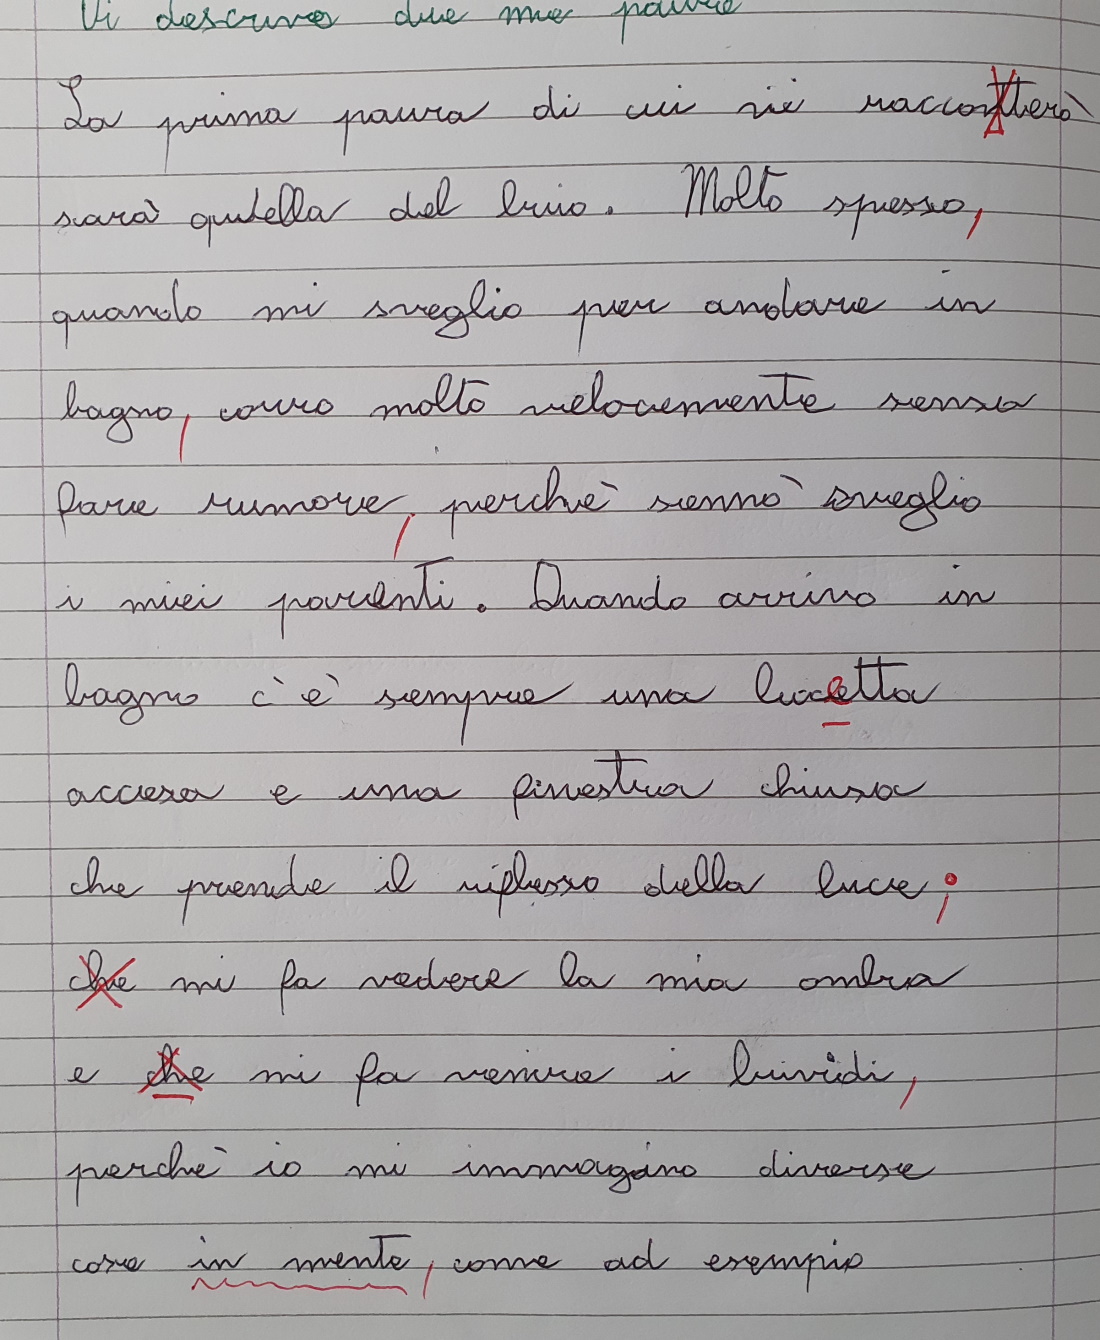 Vi descrivo due mie paure
La prima paura di cui vi racconterò
sarà quella del buio. Molto spesso,
quando mi sveglio per andare in
bagno, corro molto velocemente senza
fare rumore, perchè sennò sveglio
i miei parenti. Quando arrivo in
bagno c'è sempre una lucetta
accesa e una finestra chiusa
che prende il riflesso della luce;
che mi fa vedere la mia ombra
e che mi fa venire i brividi,
perchè io mi immagino diverse
cose in mente, come ad esempio